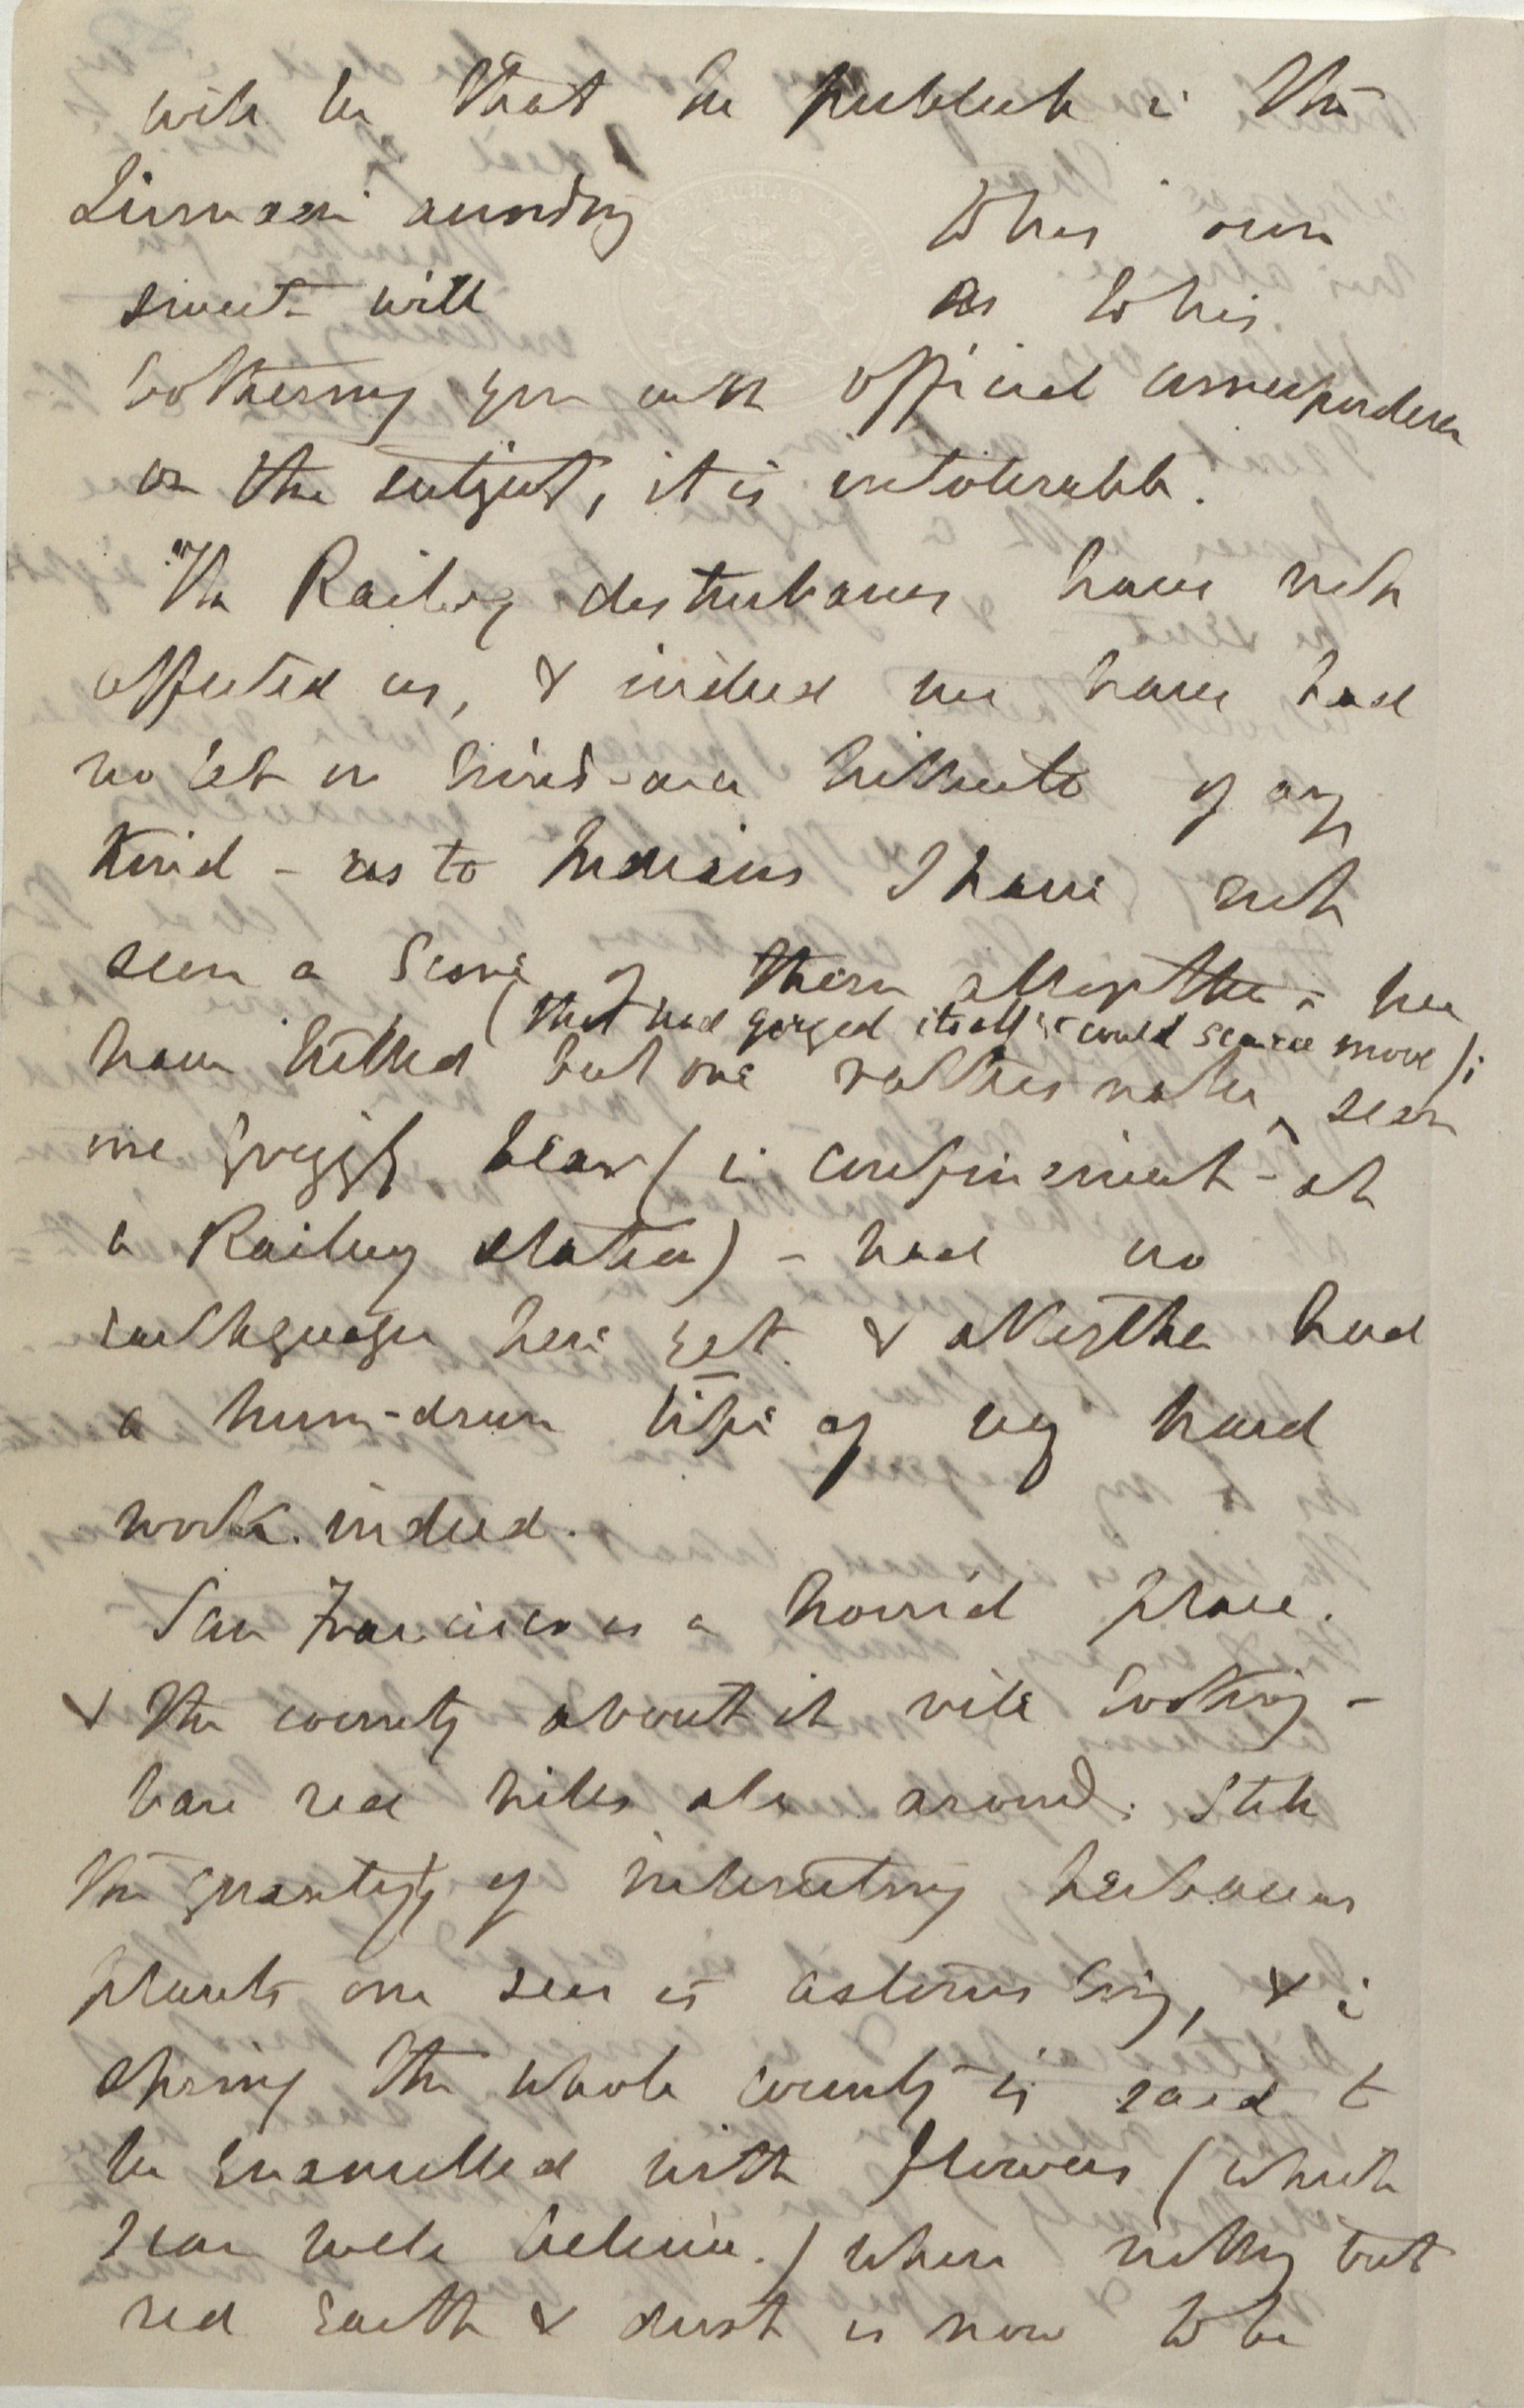 will be that he publish in the
Linnaean according to his own
sweet will as to his
bothering you with official correspondence
on the subject, it is intolerable.
The Railway disturbances have not
affected us, & indeed we have had
no let or hind-ance hitherto of any
kind – as to Indians I have not
seen a score of them altogether – we
have killed but one rattlesnake (that had gorged itself & could scarce move); seen
one grizzly bear (in confinement – at
a Railway station) – had no
earthquakes here yet. & altogether had
a hum-drum life of very hard
work indeed.
San Francisco is a horrid place.
& the country about it vile looking –
bare red hills all around. Still
the quantity of interesting herbaceous
plants one sees is astonishing, & in
spring the whole country is said to
be enamelled with flowers (which
I can well believe.) where nothing but
red earth & dust is now to be